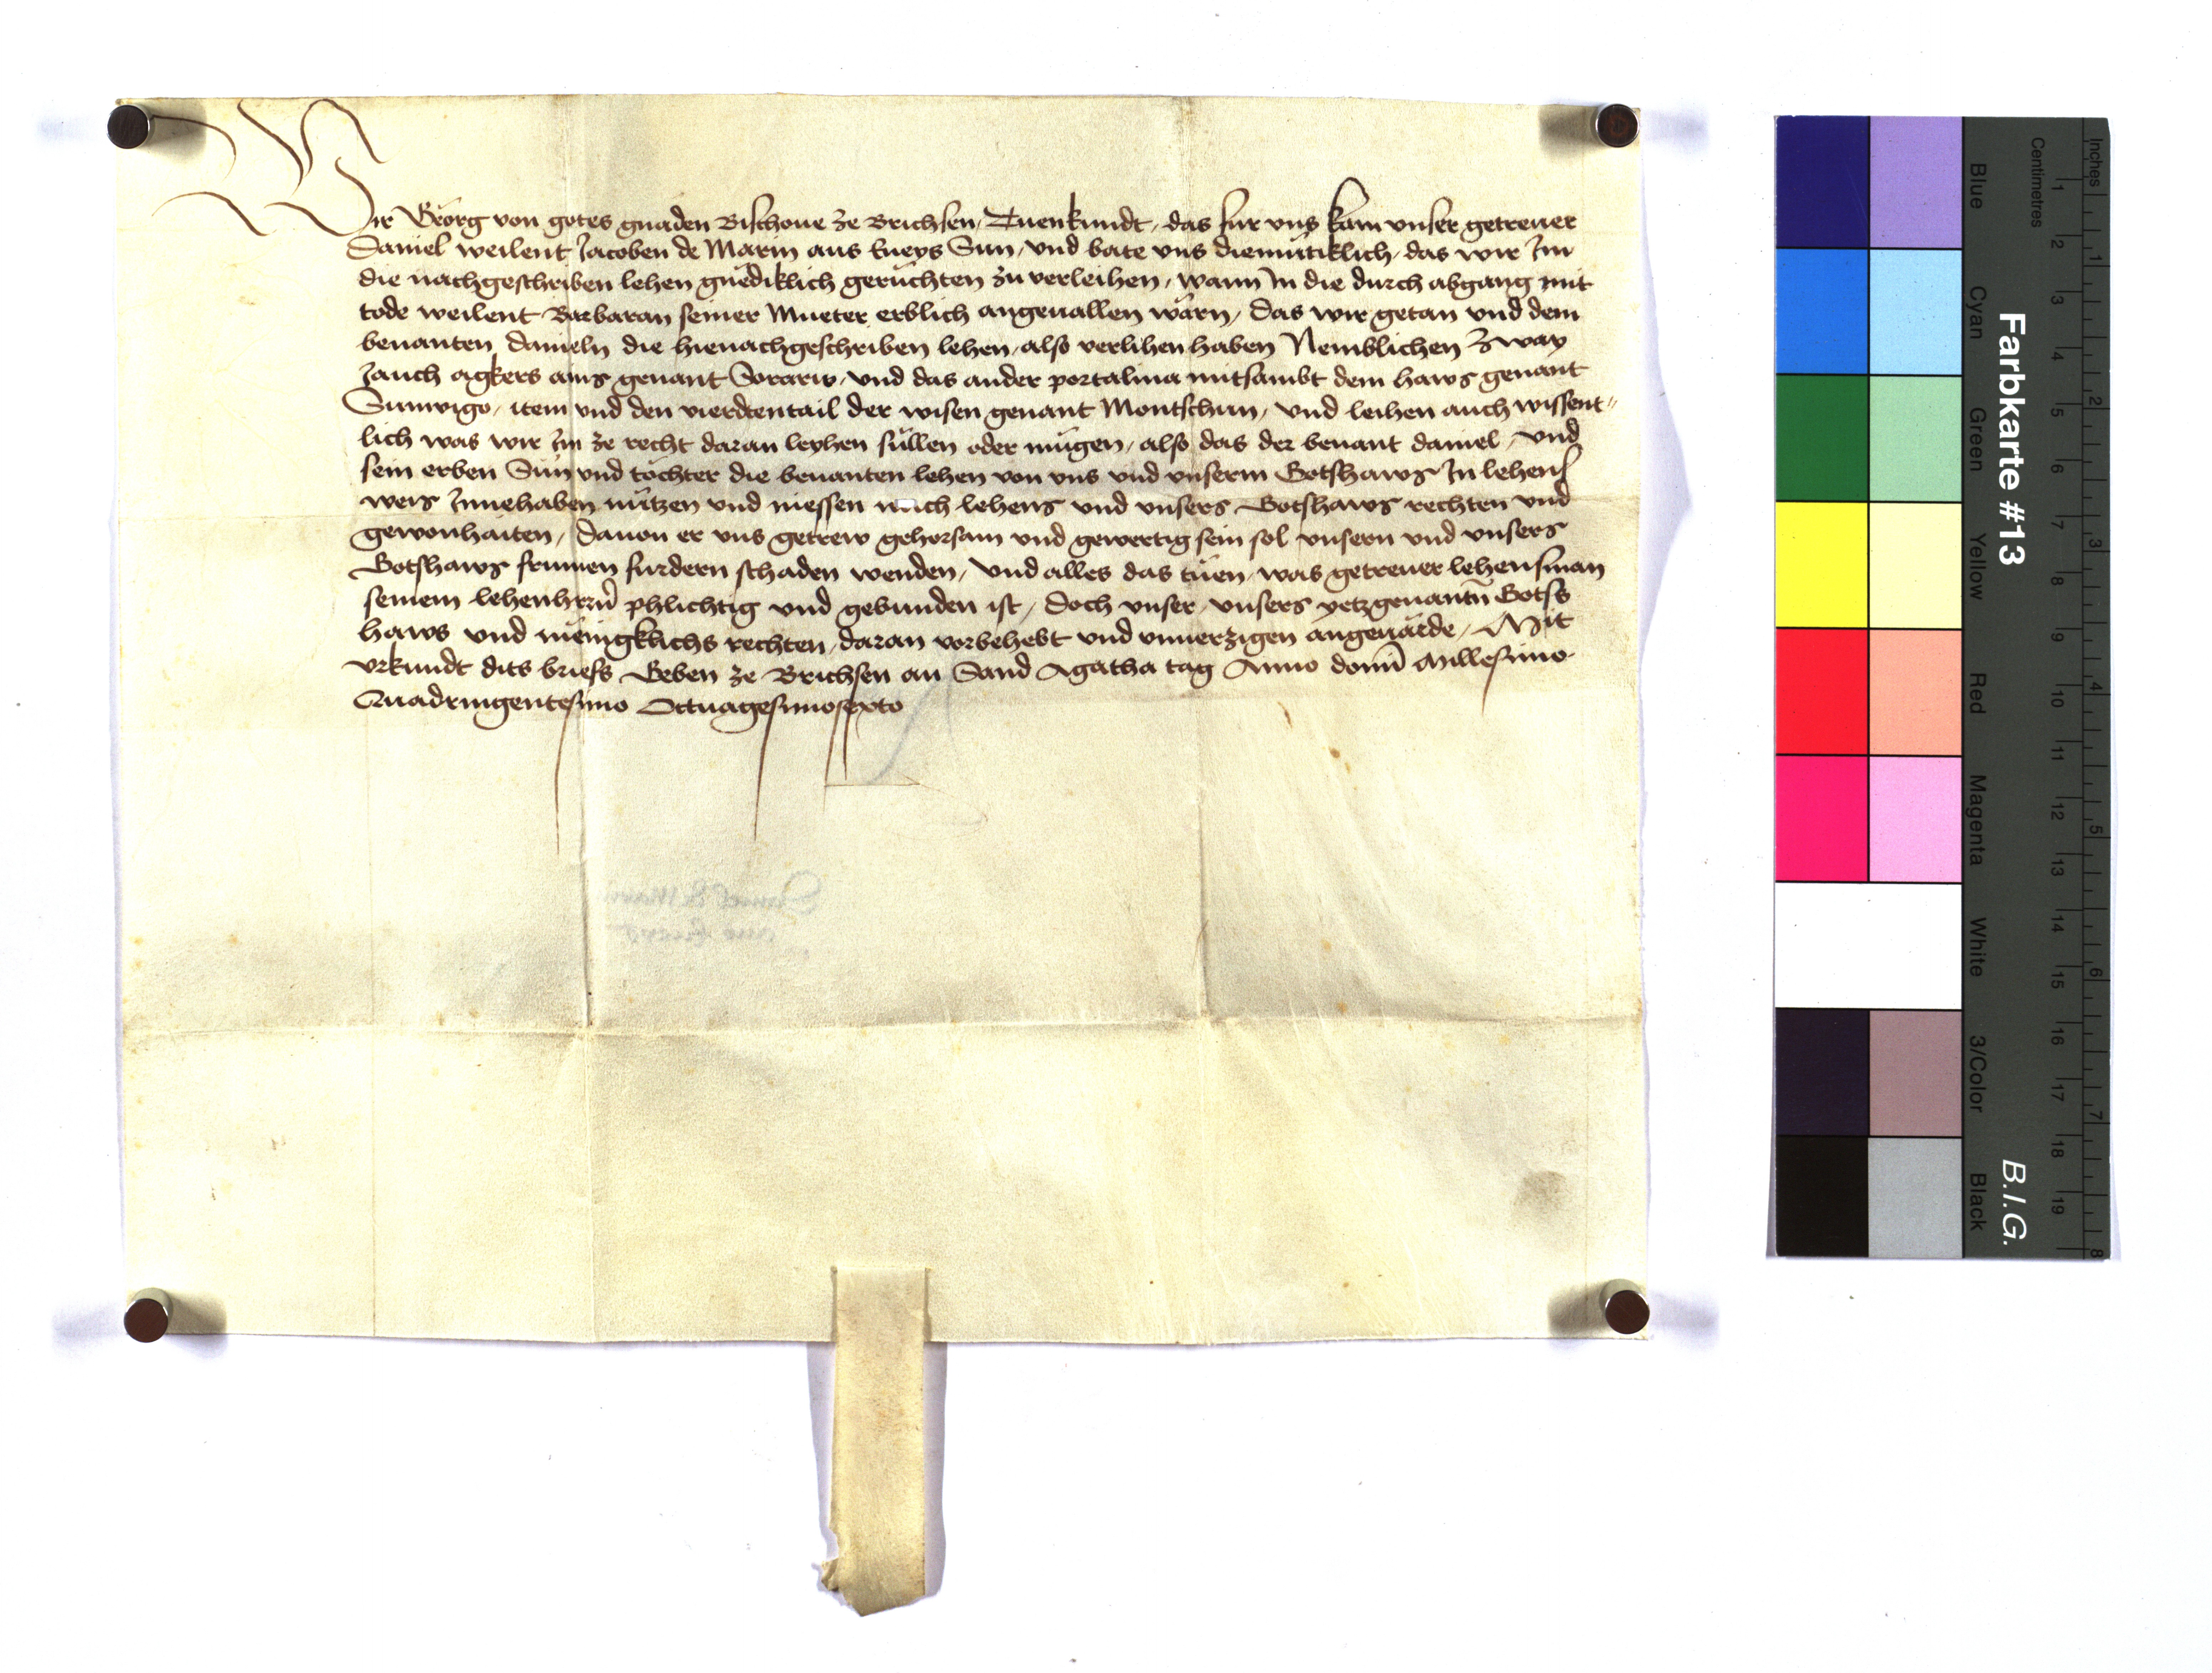 Wir Georg von gotes gnaden Bischoue ze Brichsen, Tuenkundt, das fur vns kam vnser getreuer
Daniel weilent Jacoben de Marin aus Eneys Sun, vnd bate vns diemutiklich, das wir Im
die nachgeschriben lehen gnediklich geruchten zu verleihen, wann In die durch abgang mit
tode weilent Barbaran seiner Mueter erblich angeuallen wärn, Das wir getan vnd dem
benanten Danieln die hienachgeschriben lehen, also verlihen haben Nemblichen zway
Jauch agkers ains genant Sorariv, vnd das ander portalma mitsambt dem haws genant
Sunvigo, item vnd den vierdtentail der wisen genant Montschun, vnd leihen auch wissent=
lich was wir Im ze recht daran leyhen süllen oder mügen, also das der benant Daniel, vnd
sein erben Sün vnd töchter die benanten lehen von vns vnd vnserm Gotshaws In lehens
weis Innehaben nützen vnd niessen nach lehens vnd vnsers Gotshaws rechten vnd
gewonhaiten, Dauon er vns getrew gehorsam vnd gewertig sein sol vnsern vnd vnsers
Gotshaws frumen furdern schaden wenden, vnd alles das tuen, was getreuer lehensman
seinem lehenhern phlichtig vnd gebunden ist, Doch vnser, vnsers yetzgenantn Gots
haws vnd menigklichs rechten, daran vorbehebt vnd vnuerzigen angeuärde, Mit
vrkundt dits briefs Geben ze Brichsen an Sand Agatha tag Anno domi Millesimo
Quadringentesimo Octuagesimosexto
Farbkarte #13
B.I.G.
Inches
Centimetres
Blue Cyan Green Yellow Red Magenta White 3/Color Black
1 2 3 4 5 6 7 8 9 10 11 12 13 14 15 16 17 18 19
1 2 3 4 5 6 7 8